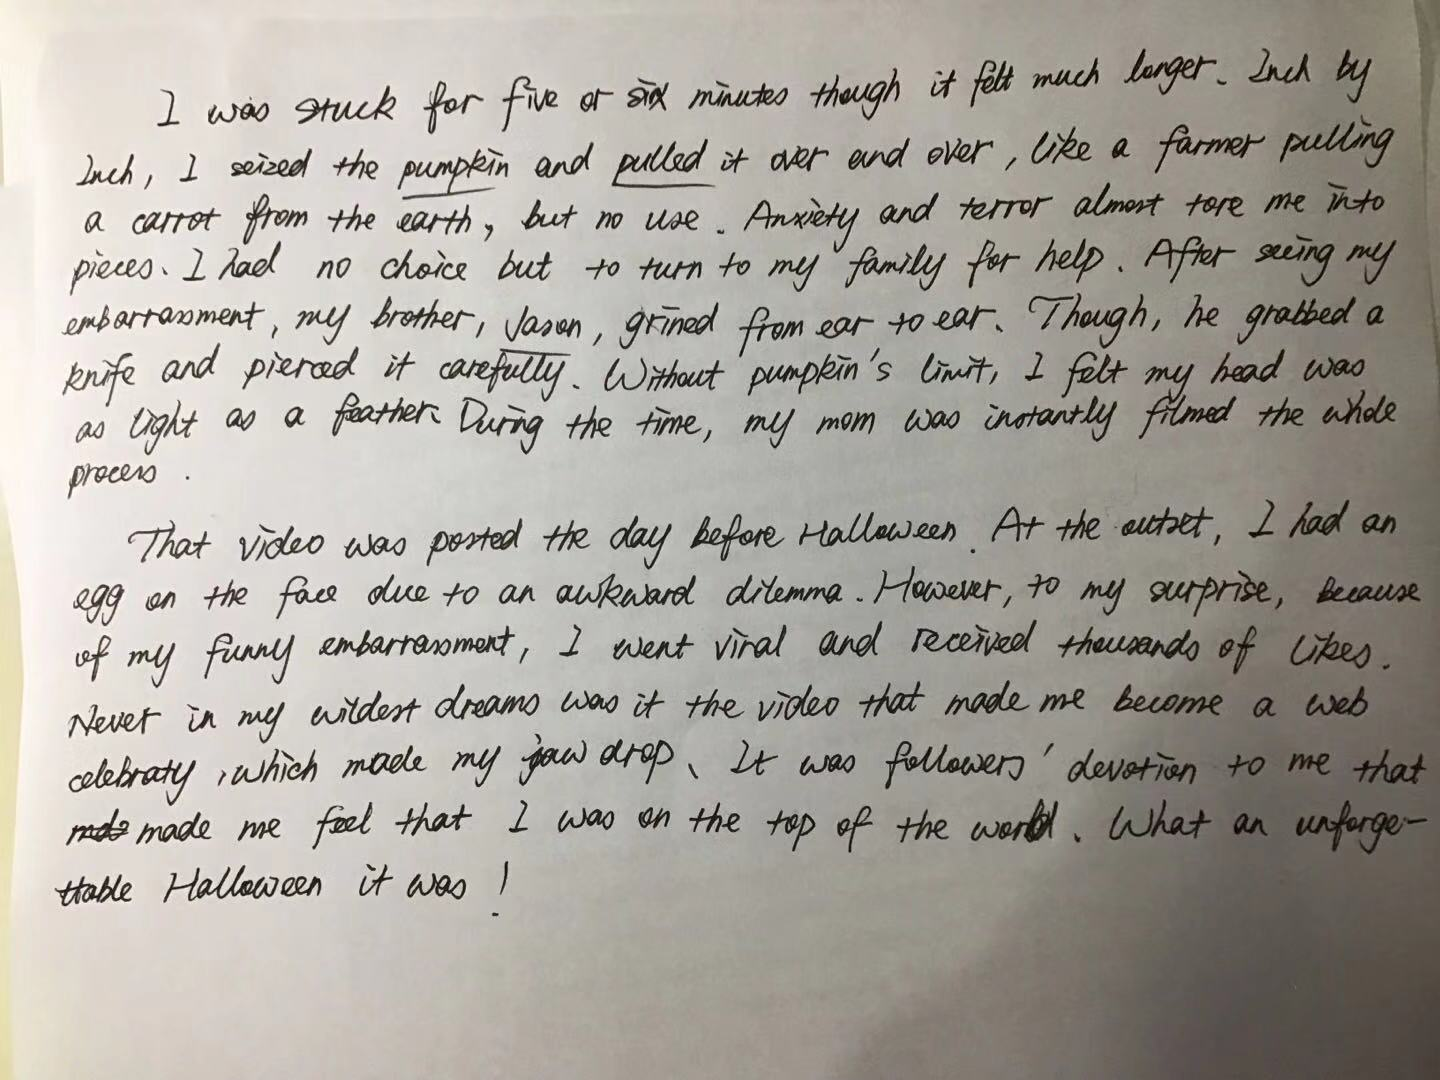 I was stuck for five or six minutes though it felt much longer. Inch by
Inch, I seized the pumpkin and pulled it over and over, like a farmer pulling
a carrot from the earth, but no use. Anxiety and terror almost tore me into
pieces. I had no choice but to turn to my family for help. After seeing my
embarrassment, my brother, Jason, grined from ear to ear. Though, he grabbed a
knife and pierced it carefully. Without pumpkin's limit, I felt my head was
as light as a feather. During the time, my mom was instantly filmed the whole
process.
That video was posted the day before Halloween. At the outset, I had an
egg on the face due to an awkward dilemma. However, to my surprise, because
of my funny embarrassment, I went viral and received thousands of likes.
Never in my wildest dreams was it the video that made me become a web
celebraty, which made my jaw drop. It was followers' devotion to me that
made me feel that I was on the top of the world. What an unforge-
ttable Halloween it was!